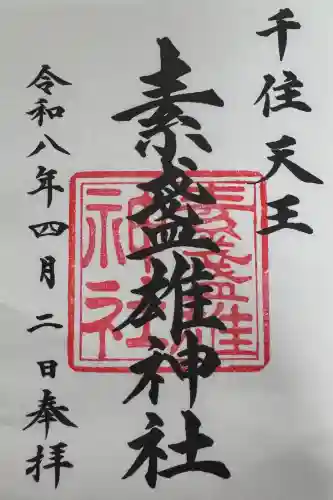 千住天王
素盞雄神社
令和八年四月二日奉拝
素盞雄神社